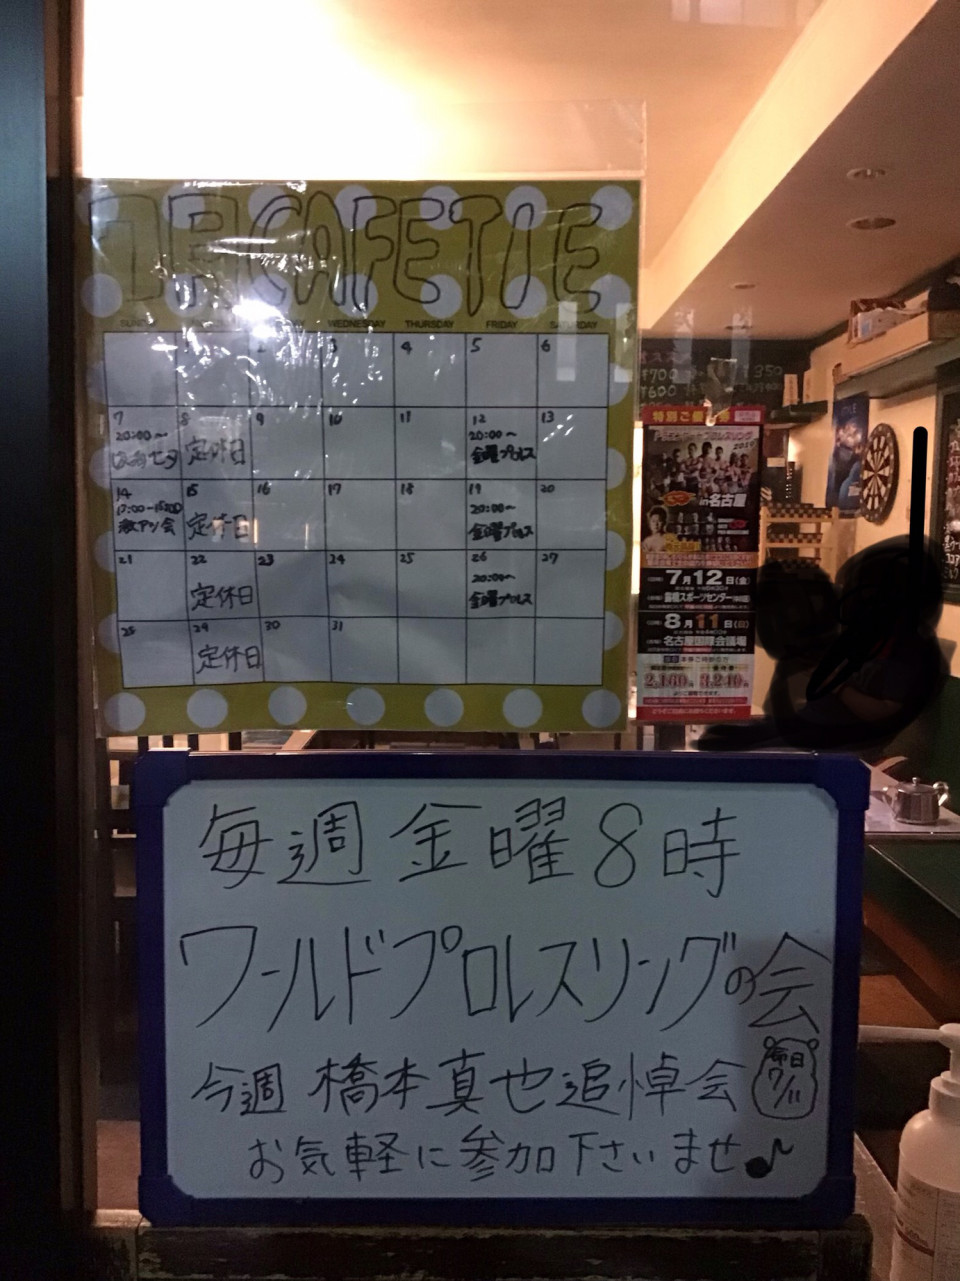 7月 CAFETIE
SUNDAY WEDNESDAY THURSDAY FRIDAY SATURDAY
1 2 3 4 5 6
7 8 9 10 11 12 13
20:00〜 定休日 20:00〜
七夕 金曜プロレス
14 15 16 17 18 19 20
定休日 20:00〜
激アツ会 金曜プロレス
21 22 23 24 25 26 27
定休日 20:00〜
金曜プロレス
29 30 31
定休日
¥700 ¥350
¥600
特別ご優待券
2019
in名古屋
7月12日(金)
スポーツセンター
8月11日(日)
名古屋国際会議場
2,160 3,240
毎週金曜8時
ワールドプロレスリングの会
今週 橋本真也追悼会
命日
7/11
お気軽に参加下さいませ♪